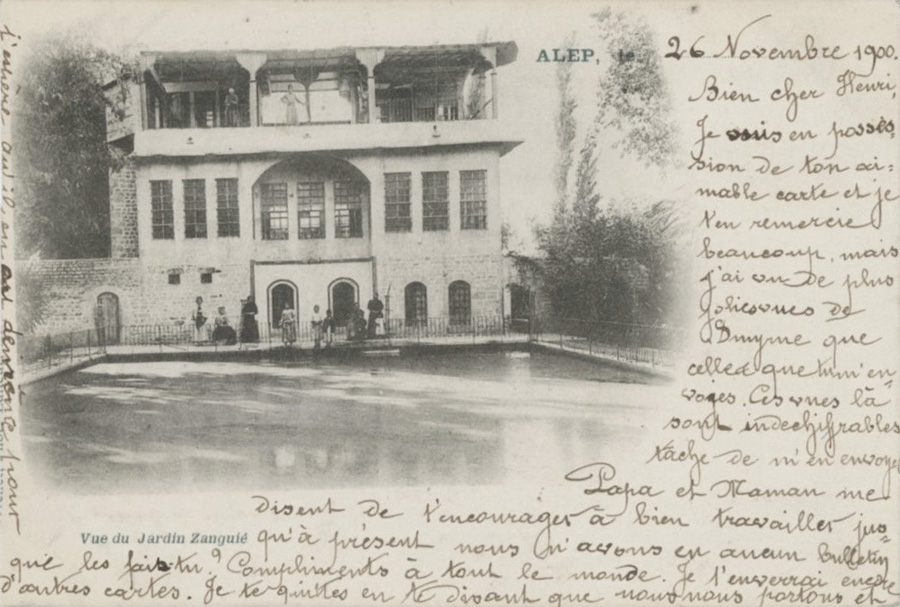 ALEP, le 26 Novembre 1900.
Bien cher Henri,
Je suis en posses-
sion de ton ai-
mable carte et je
t'en remercie
beaucoup, mais
j'ai vu de plus
jolies vues de
Smyrne que
celles que tu m'en-
voies. Ces vues là
sont indechiffrables
tâche de m'en envoyer
Papa et Maman me
disent de t'encourager à bien travailler jus-
Vue du Jardin Zanguié
qu'à présent nous n'avons eu aucun bulletin
que les fais-tu? Compliments à tout le monde. Je t'enverrai encore
d'autres cartes. Je te quittes en te disant que nous nous portons et